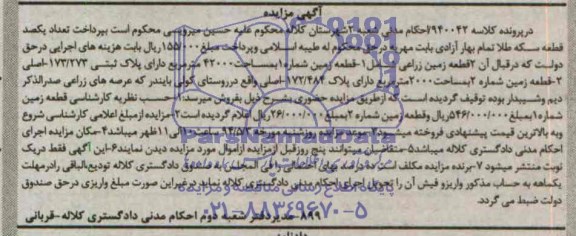 آگهی مزایده
درپرونده کلاسه ۹۴۰۰۴۲/احکام مدنی شعبه ۲شهرستان کلاله محکوم علیه حسین میرویسی محکوم است بپرداخت تعداد یکصد
قطعه سکه طلا تمام بهار آزادی بابت مهریه درحق محکوم له طیبه اسلامی وپرداخت مبلغ ۱۵۵/۰۰۰ریال بابت هزینه های اجرایی درحق
دولت که درقبال آن ۲قطعه زمین زراعی ۱-قطعه زمین شماره ۱بمساحت ۴۲۰۰۰ مترمربع دارای پلاک ثبتی ۱۷۳/۲۷۳-اصلی
۲-قطعه زمین شماره ۲بمساحت۲۰۰۰۰مترمربع دارای پلاک ۱۷۳/۴۸۴-اصلی واقع درروستای کولی بایندر که عرصه های زراعی صدرالذکر
دیم وشیبدار بوده توقیف گردیده است که ازطریق مزایده حضوری بشرح ذیل بفروش میرسد:۱-حسب نظریه کارشناسی قطعه زمین
شماره۱بمبلغ ۵۴۶/۰۰۰/۰۰۰ریال وقطعه زمین شماره ۲بمبلغ ۲۶۰/۰۰۰/۰۰۰ریال اعلام گردیده است۲-مزایده ازمبلغ اعلامی کارشناسی شروع
وبه بالاترین قیمت پیشنهادی فروخته میشود ۳-موعد مزایده روزشنبه مورخه ساعت ۱۰الی ۱۱ظهر میباشد۴-مکان مزایده اجرای
احکام مدنی دادگستری کلاله میباشد۵-متقاضیان میتوانند پنج روزقبل ازمزایده ازاموال مورد مزایده دیدن نمایند۶-این آگهی فقط دریک
نوبت منتشر میشود ۷-برنده مزایده مکلف است ده درصد بهای احتمالی را فی المجلس به صندوق دادگستری کلاله تودیع،الباقی رادرمهلت
یکماهه به حساب مذکور واریزو فیش آن را تحویل اجرای احکام مدنی دادگستری کلاله نماید.درغیراین صورت مبلغ واریزی درحق صندوق
دولت ضبط می گردد.
۸۹۹-مدیردفتر شعبه دوم احکام مدنی دادگستری کلاله-قربانی
پایگاه اطلاع رسانی مناقصه و مزایده
۰۲۱-۸۸۳۴۹۶۷۰-۵